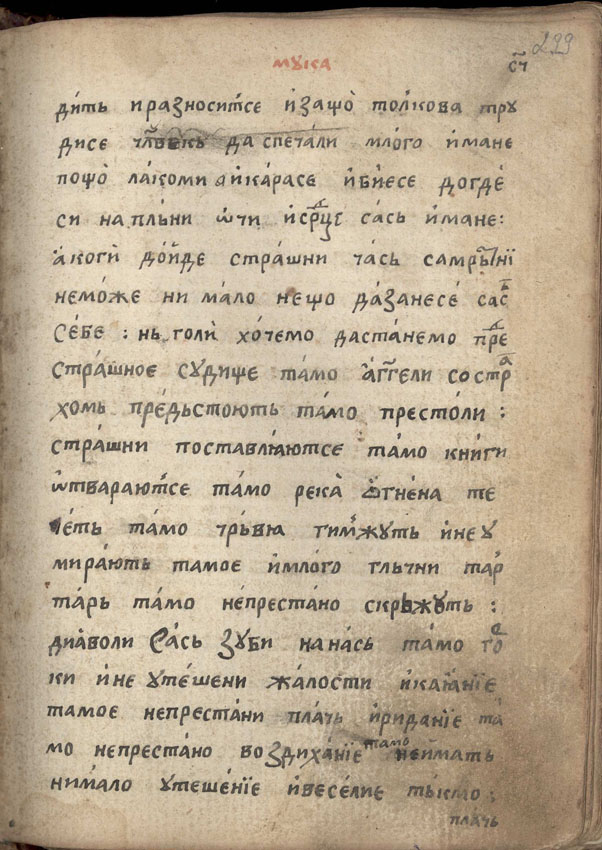 мука
с҃ч 299
ди́ть и разноси́тсе и҆ защо̀ толи́кова тру
дисе чл҃векь да спеча́ли мло́го и҆мане
пощо̀ ла́коми а҆и҆ ка́расе и҆биесе догде́
си напль́ни ѡ҆чи и҆срⷣце са́сь и҆мане:
а҆коги̇̀ до́йде стра́шни ча́сь самрьтнї
немо́же ни ма́ло нещо да́занесе́ сась
се́бе : нь голи̇̀ хо́чемо даста́немо прⷣе
стра́шное су́дище та́мо а҆гг҃ели со стрⷶ
хомь пре́дьстоють та́мо престо́ли :
стра́шни поставлꙗ́ютсе та́мо книги
ѿтвараю́тсе та́мо река̀ ѻ҆́гнена те
че́ть та́мо чрь́вїа гими́жуть и҆не у
мира́ють тамое и҆мло́го гль́чни тар
та́рь та́мо непреста́но скрь́жуть :
диа́воли са́сь зу́би нана́сь та́мо го́рⷭ
ки и҆не уте́шени жа́лости и҆каꙗ́нїе
тамое непреста́ни пла́чь и҆рида́нїе та́
мо непреста́но воздиха́нїе тамо неи҆мать
нима́ло утеше́нїе и҆весе́лие ть́кмо :
плачь